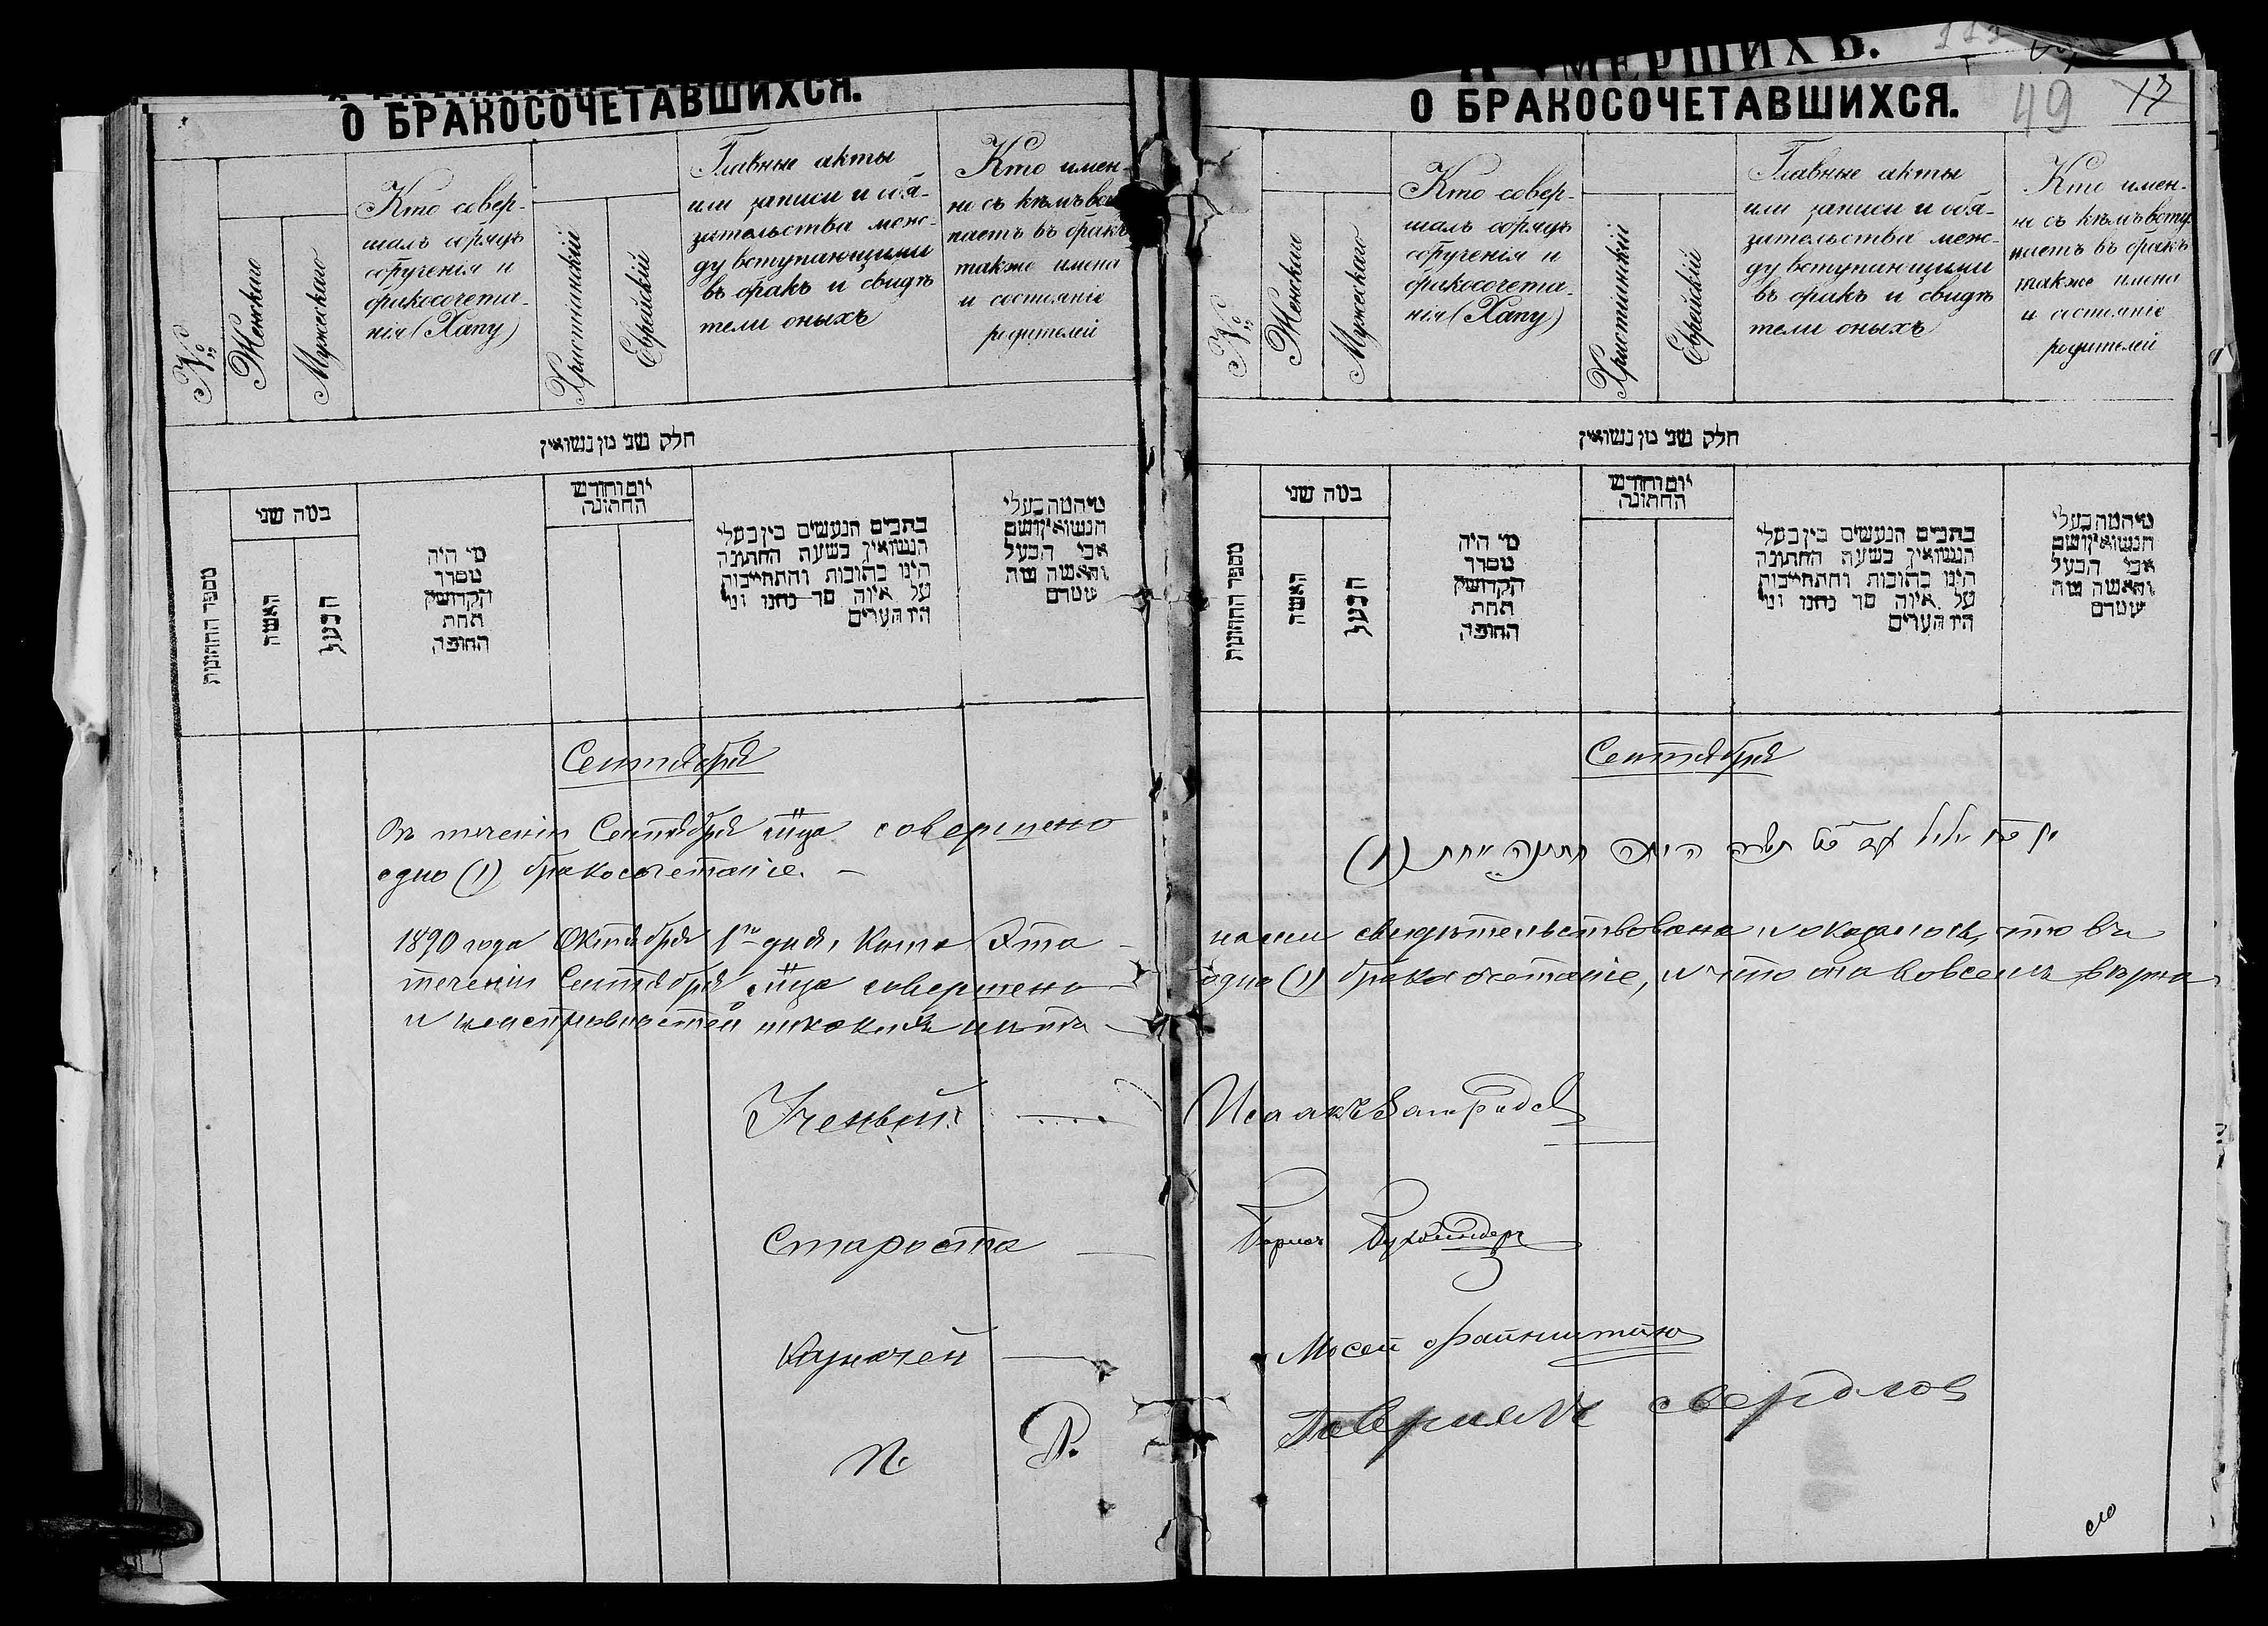 О БРАКОСОЧЕТАВШИХСЯ.
№
Женскаго
Мужескаго
Кто совер-
шалъ обрядъ
обрученія и
бракосочета-
нія (Хапу)
Христіанскій
Еврейскій
Главные акты
или записи и обя-
зательства меж-
ду вступающими
въ бракъ и свидѣ
тели оныхъ
Кто имен-
но съ кѣмъ всту
паетъ въ бракъ
также имена
и состояніе
родителей
חלק שני מן נשואין
מספר החתונות
במה שני
האשה
הבעל
מי היה
מסדר
הקדושין
תחת
החופה
יום וחודש
החתונה
כתבים הנעשים בין בעלי
הנשואין בשעת החתונה
היינו כתובות והתחייבות
על איזה סך נתנו ומי
היו העדים
מי המה בעלי
הנשואין ושם
אבי הבעל
והאשה ומה
שטרם
Сентября
Въ теченіи Сентября м-ца совершено
одно (1) бракосочетаніе. —
1890 года Октября 1го дня, Книга эта —
теченіи Сентября м-ца совершено —
и неисправностей никакихъ нѣтъ —
Ученый
Староста —
Казначей —
О УМЕРШИХЪ.
О БРАКОСОЧЕТАВШИХСЯ.
49
17
№
Женскаго
Мужескаго
Кто совер-
шалъ обрядъ
обрученія и
бракосочета-
нія (Хапу)
Христіанскій
Еврейскій
Главные акты
или записи и обя-
зательства меж-
ду вступающими
въ бракъ и свидѣ
тели оныхъ
Кто имен-
но съ кѣмъ всту
паетъ въ бракъ
также имена
и состояніе
родителей
חלק שני מן נשואין
מספר החתונות
במה שני
האשה
הבעל
מי היה
מסדר
הקדושין
תחת
החופה
יום וחודש
החתונה
כתבים הנעשים בין בעלי
הנשואין בשעת החתונה
היינו כתובות והתחייבות
על איזה סך נתנו ומי
היו העדים
מי המה בעלי
הנשואין ושם
אבי הבעל
והאשה ומה
שטרם
Сентября
תשרי היתה חתונה אחת (1)
нами свидѣтельствована и оказалось, что въ
одно (1) бракосочетаніе, и что она во всемъ вѣрна
Исаакъ
Борисъ Бухбиндеръ
Мосей Файнштейнъ
Свердлов